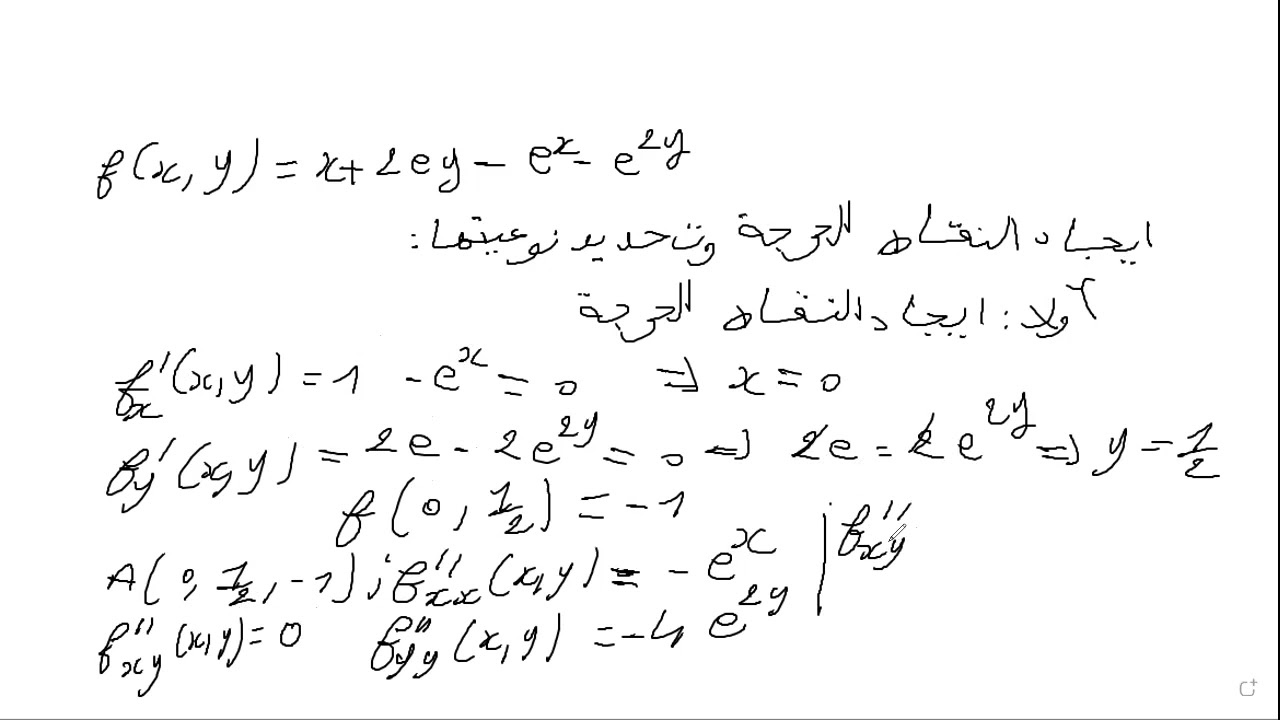 f(x, y) = x + 2ey - e^x - e^{2y}
ايجاد النقاط الحرجة وتحديد نوعيتها:
أولا: ايجاد النقاط الحرجة
f'_x(x, y) = 1 - e^x = 0 ⇒ x = 0
f'_y(x, y) = 2e - 2e^{2y} = 0 ⇒ 2e = 2e^{2y} ⇒ y = 1/2
f(0, 1/2) = -1
A(0, 1/2, -1) ; f''_{xx}(x, y) = -e^x | f''_{xy}
f''_{xy}(x, y) = 0 f''_{yy}(x, y) = -4e^{2y}